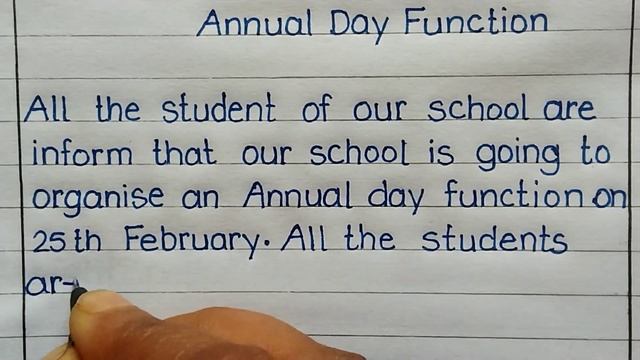 Annual Day Function
All the student of our school are
inform that our school is going to
organise an Annual day function on
25th February. All the students
ar